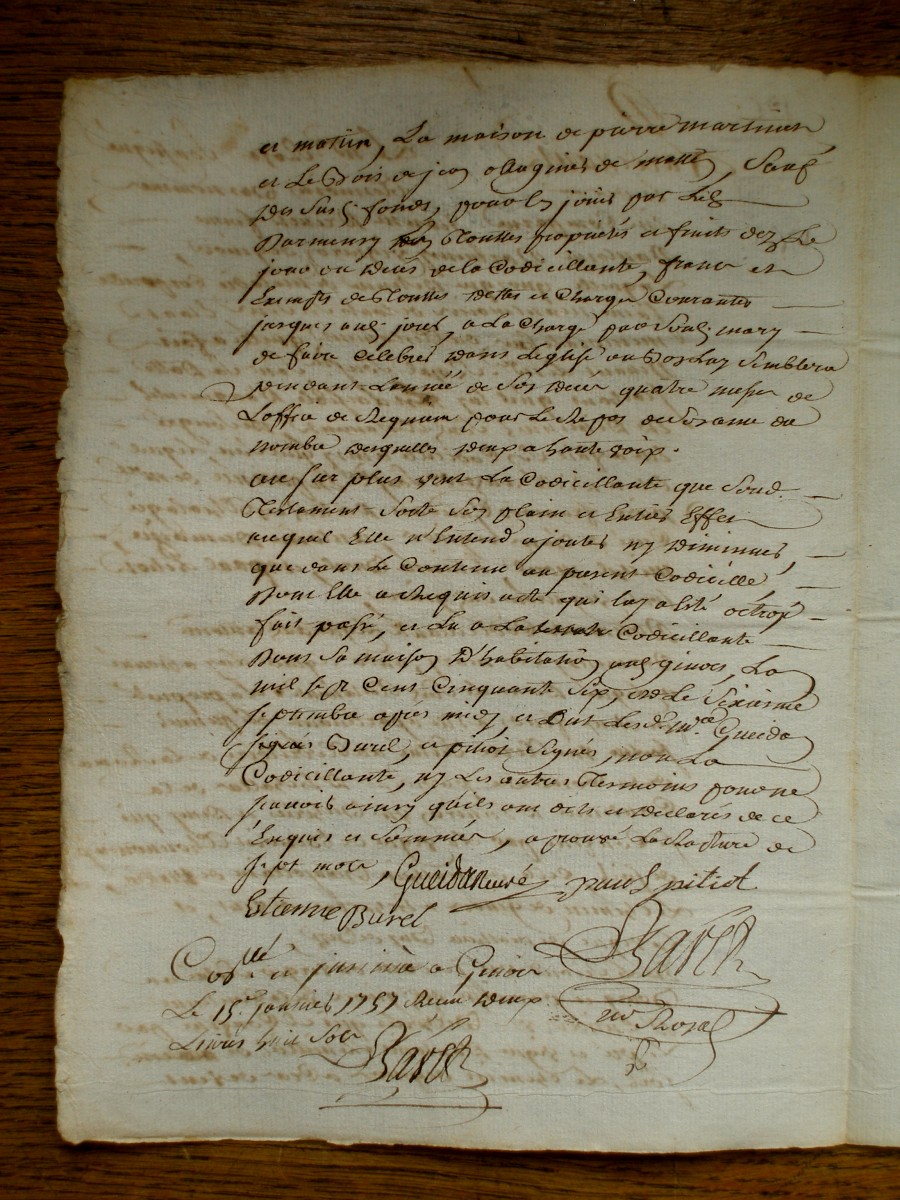 et matin, La maison de pierre martinen
et Le Bois de jean ollagnier de matth, Sauf
des Susd. fonds, pour en joüir par Led.
Barmensy en Touttes propriétés et fruits dez Le
jour du décés de la Codicillante, franc et
Exempts de Touttes dettes et Charges Courantes
jusques aud. jour, a La Charge par Sond. mary
de faire Célébrer dans L'eglise ou Bon Luy Semblera
pendant L'année de Son décés quatre messes de
L'office de Requiem pour Le Repos de Son ame du
nombre desquelles deux a haute voix.
au Sur plus veut La Codicillante que Sond.
Testament Sorte Son plain et Entier Effet
auquel Elle n'Entend ajouter ny diminuer,
que dans Le Contenu au present Codicille,
Dont Elle a Requis acte qui luy a été octroyé
fait passé, et Lu a La Codicillante
Dans Sa maison D'habitation aud. ginoes, La
mil Sept Cens Cinquante Six, et Le Sixieme
Septembre après midy, et ont Lesd. Gueidan
Burel, et pitiot Signés, non La
Codicillante, ny Les autres Tesmoins pour ne
Savoir ainsy qu'ils ont dits et déclarés de ce
Enquis et Sommés, aprouvé La Rature de
Sept mots, Gueidan curé paul pitiot
Etienne Burel
Barch
Conllé et jusiné a
Le 15e. janvier 1757 Reçu deux
Livres huit Sols
Barch